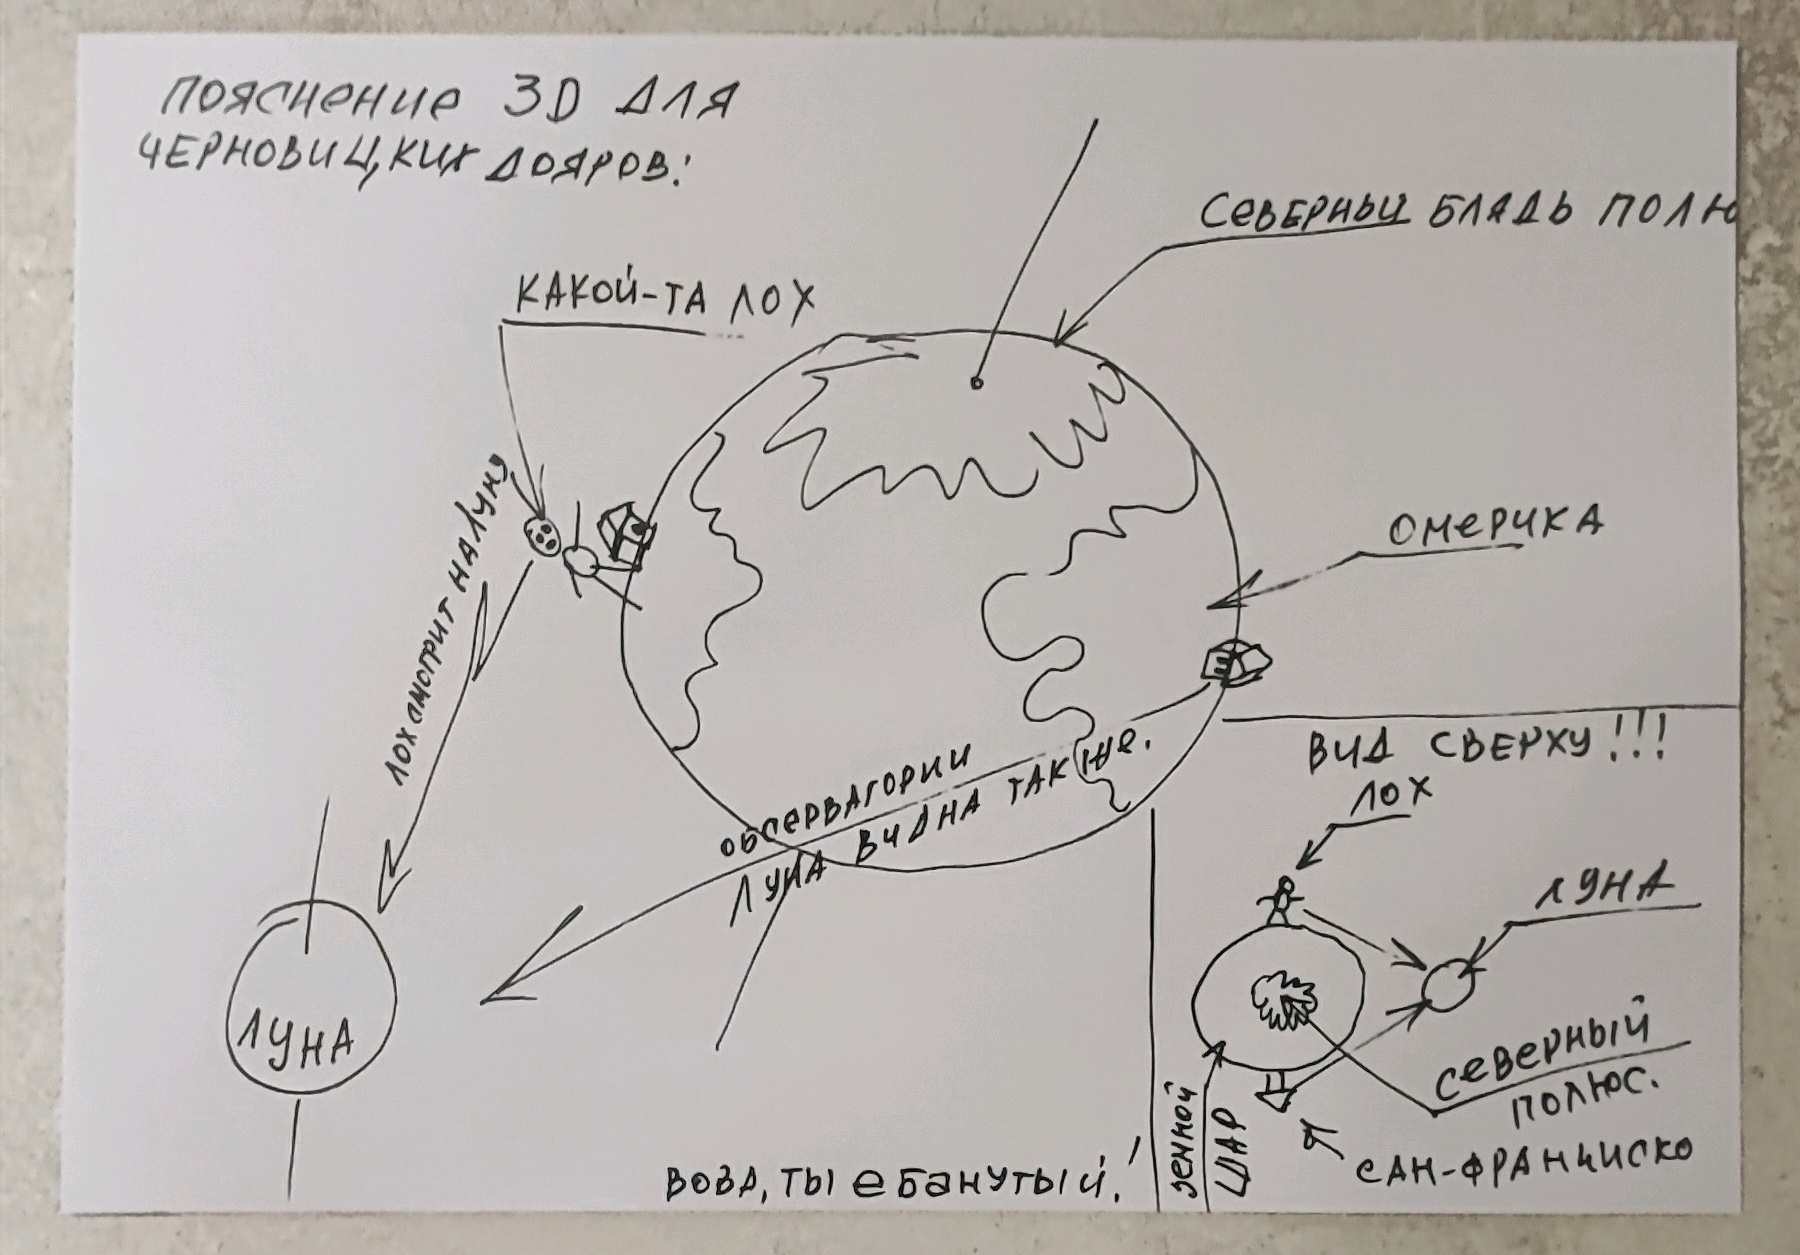 ПОЯСНЕНИЕ 3D ДЛЯ
ЧЕРНОВИЦКИХ ДОЯРОВ:
СЕВЕРНЫЙ БЛЯДЬ ПОЛЮ
КАКОЙ-ТА ЛОХ
ЛОХ СМОТРИТ НА ЛУНУ
ОМЕРИКА
ОБСЕРВАТОРИИ
ЛУНА ВИДНА ТАК ЖЕ.
ЛУНА
ВИД СВЕРХУ!!!
ЛОХ
ЛУНА
СЕВЕРНЫЙ
ПОЛЮС.
САН-ФРАНЦИСКО
ЗЕМНОЙ
ШАР
ВОВА, ТЫ ЕБАНУТЫЙ!